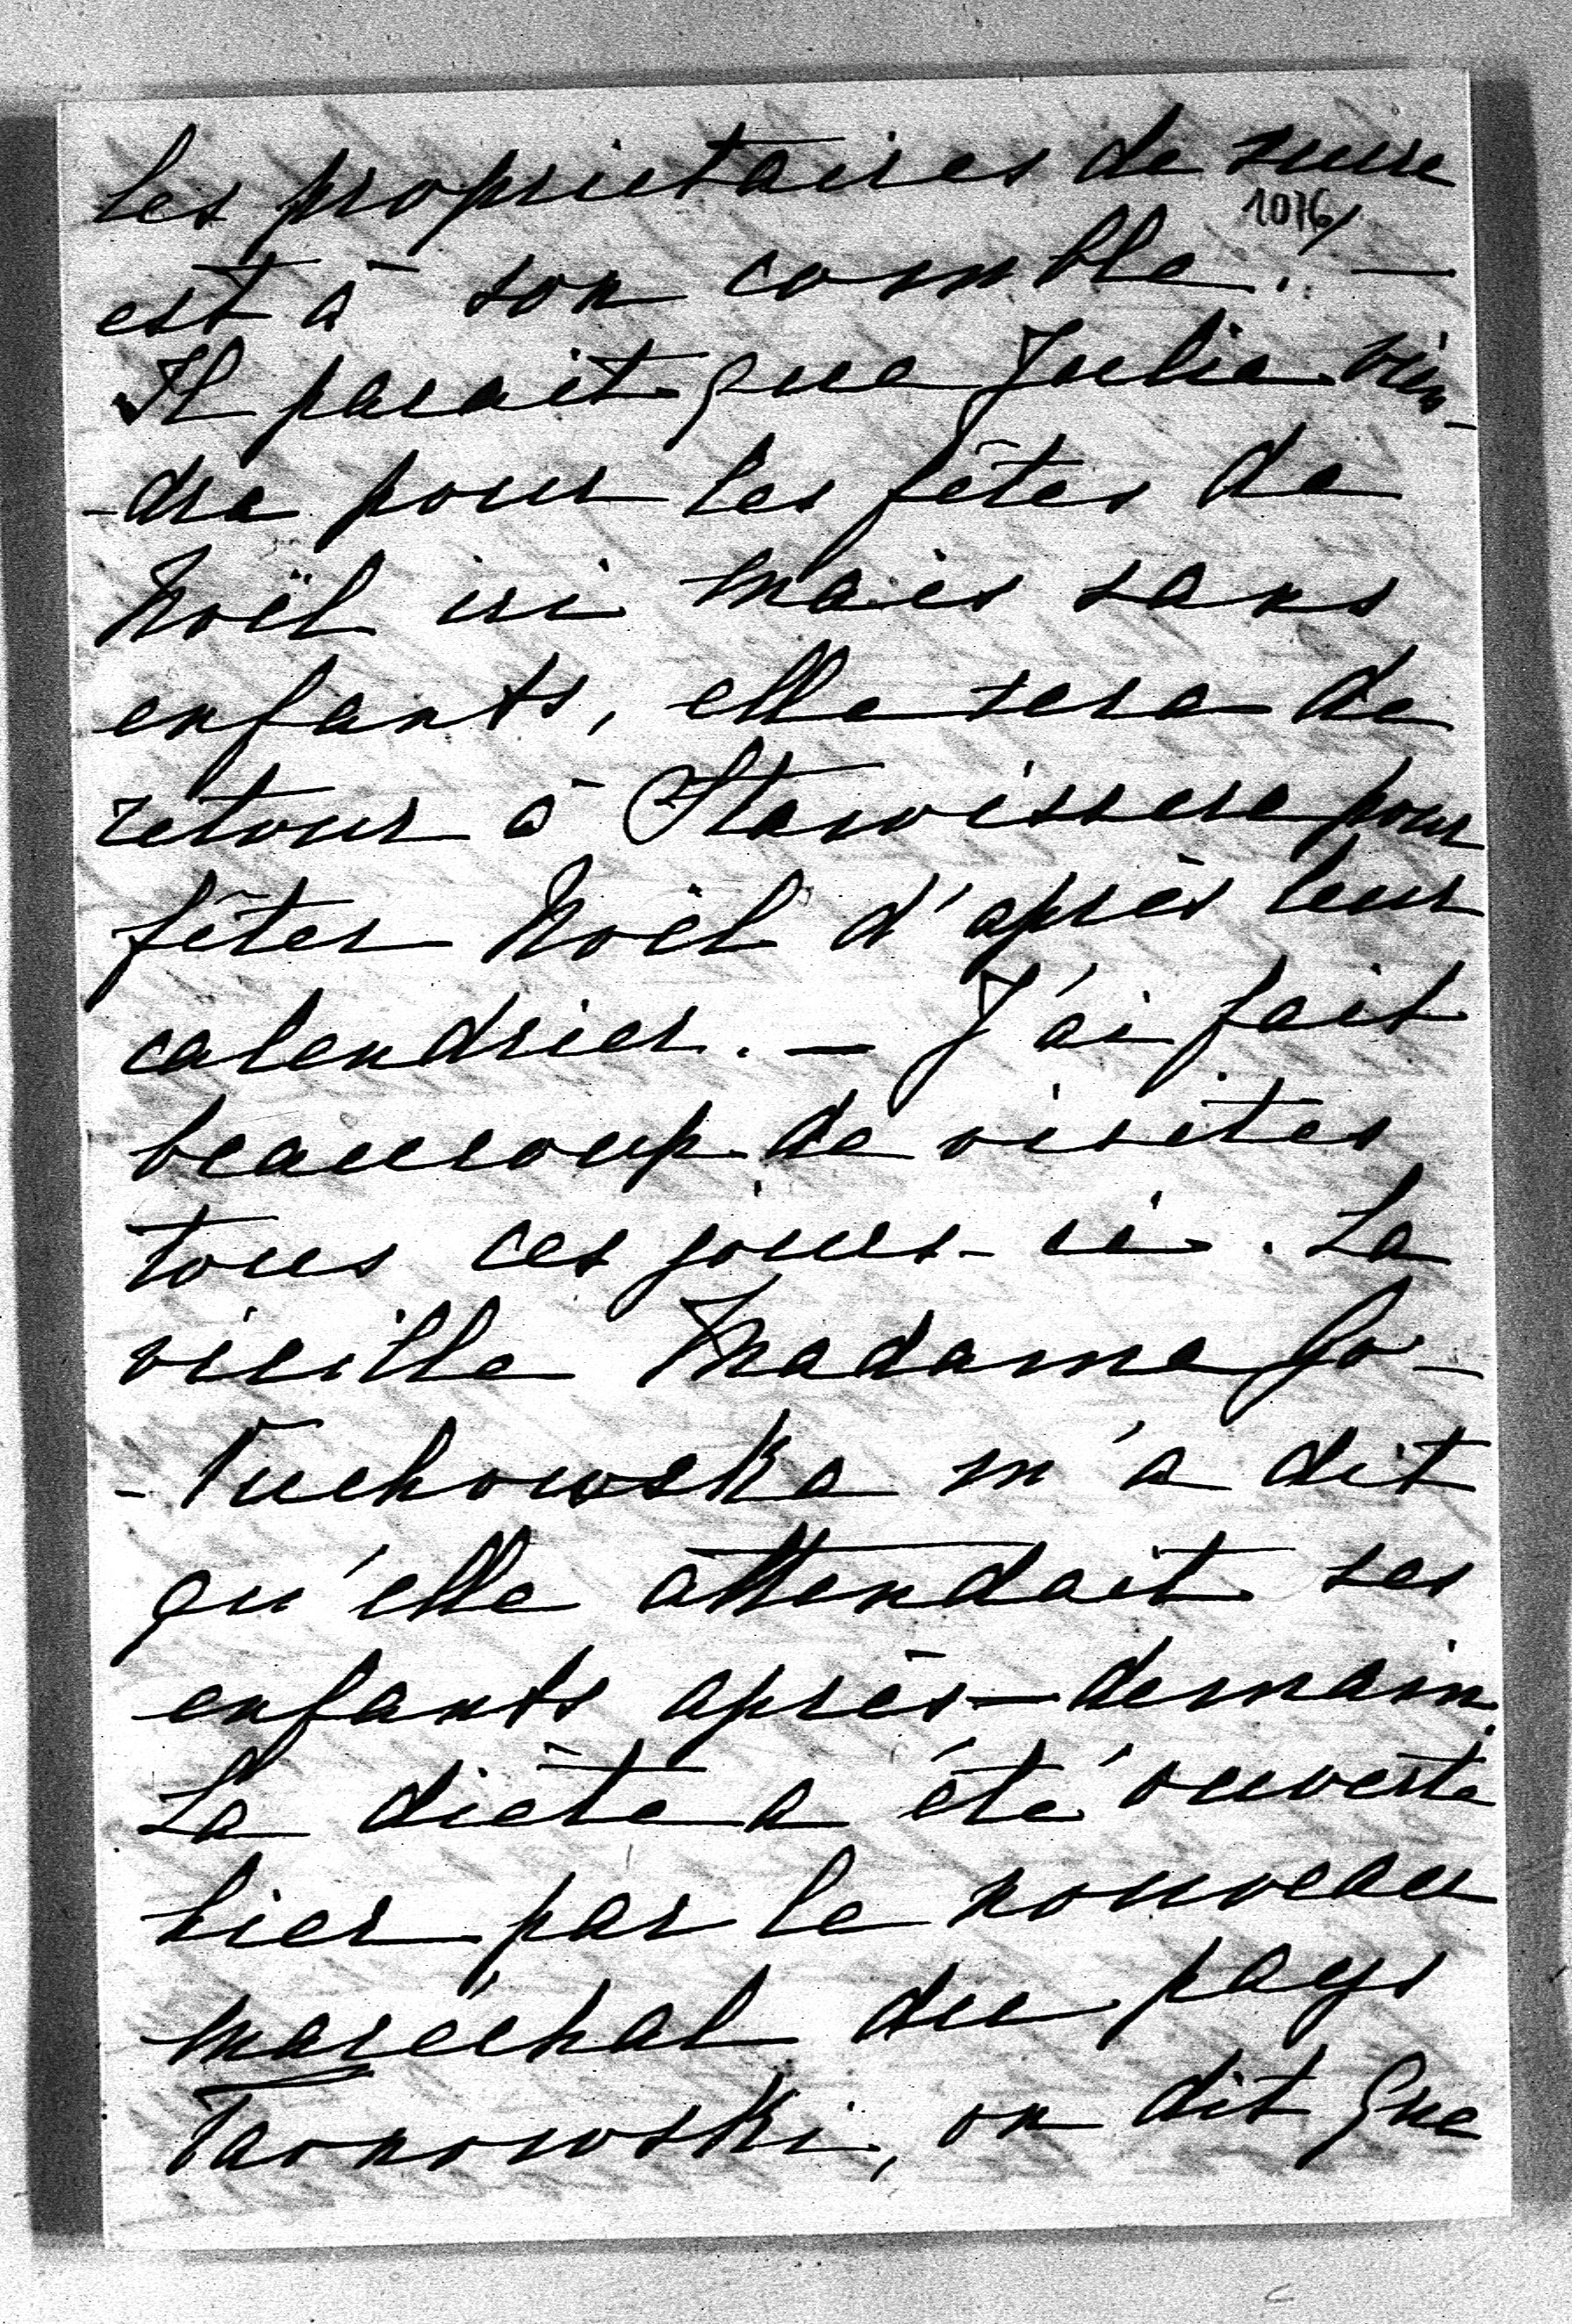 les proprietaires de sucre
1076/
est à son comble! —
Il parait que Julie vien-
-dra pour les fêtes de
Noël ici mais sans
enfants, elle sera de
retour à Stawissere pour
fêter Noël d'après leur
calendrier. — J'ai fait
beaucoup de visites
tous ces jours-ci. La
vieille Madame Go-
-Tuchowska m'a dit
qu'elle attendait ses
enfants après-demain.
La diète a été ouverte
hier par le nouveau
maréchal du pays
Tarnowski, on dit que